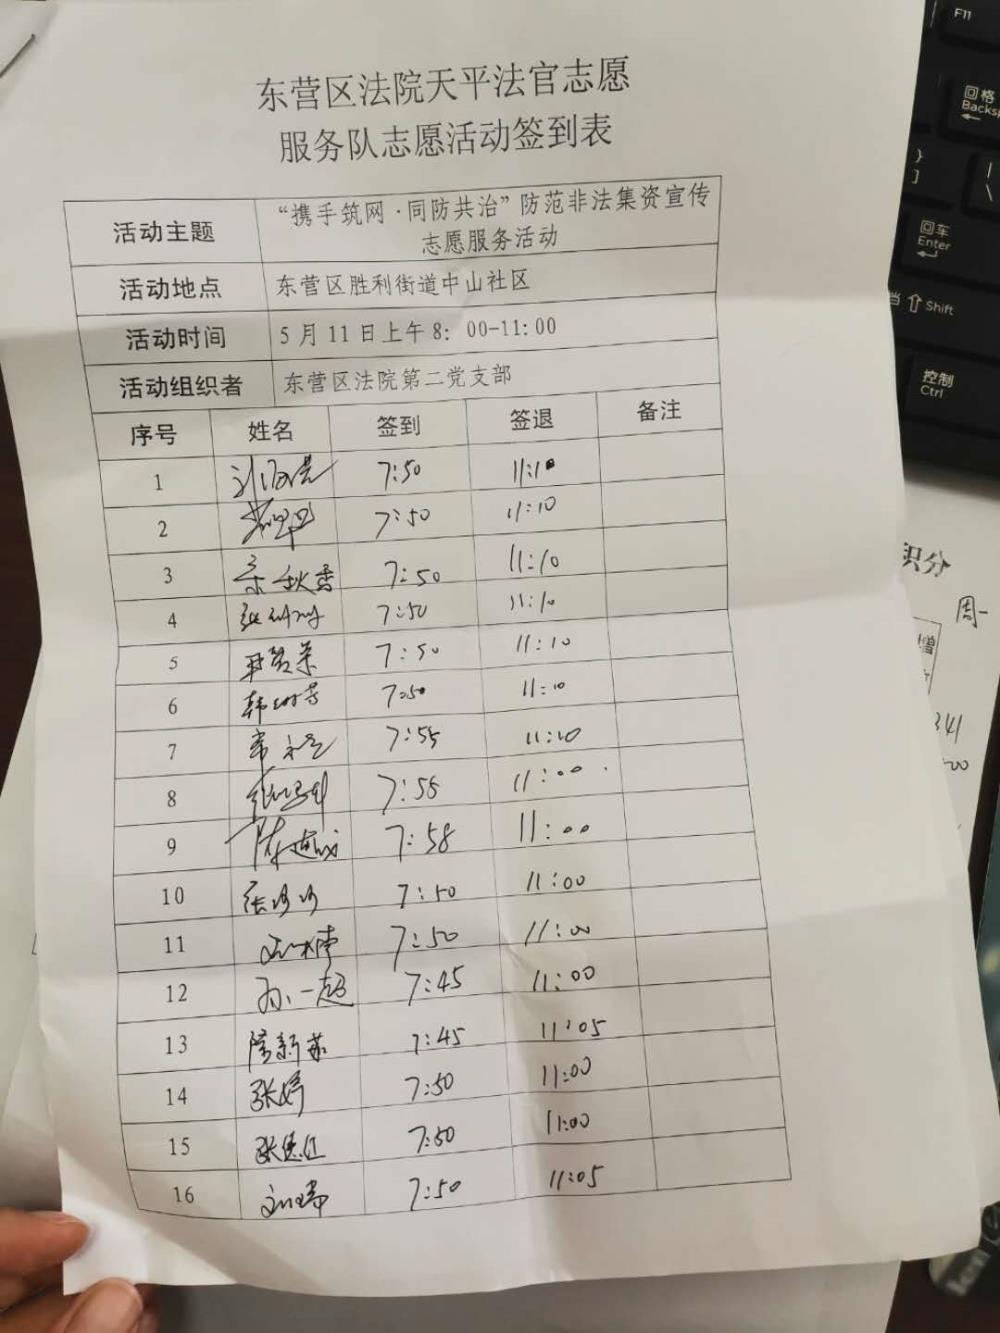 东营区法院天平法官志愿
服务队志愿活动签到表
活动主题 “携手筑网·同防共治”防范非法集资宣传
志愿服务活动
活动地点 东营区胜利街道中山社区
活动时间 5月11日上午8：00-11:00
活动组织者 东营区法院第二党支部
序号 姓名 签到 签退 备注
1 7:50 11:10
2 7:50 11:10
3 宗秋香 7:50 11:10
4 7:50 11:10
5 7:50 11:10
6 7:50 11:10
7 7:55 11:10
8 7:58 11:00
9 7:58 11:00
10 张珍珍 7:50 11:00
11 7:50 11:00
12 孙一超 7:45 11:00
13 7:45 11:05
14 张婷 7:50 11:00
15 7:50 11:00
16 刘瑞 7:50 11:05
F11
回格
Backsp
}
]
|
\
回车
Enter
Shift
控制
Ctrl
积分
周一
增
341